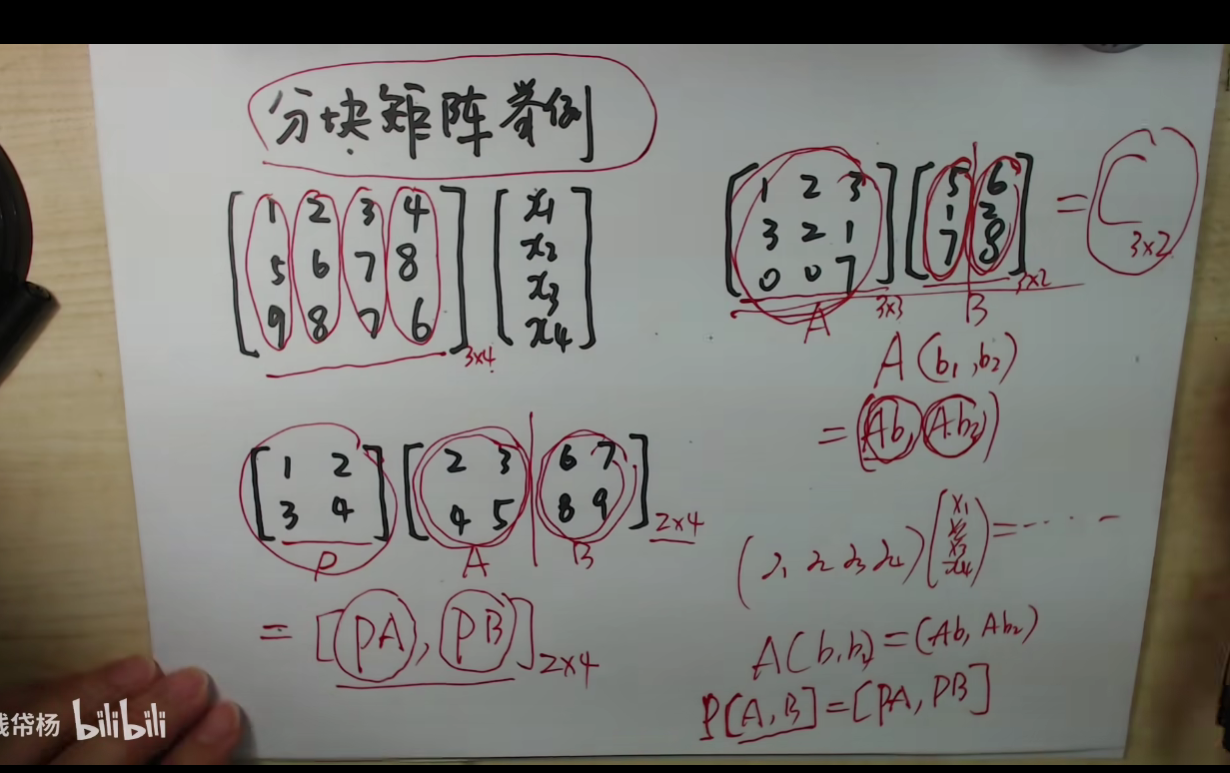 分块矩阵举例
[1 2 3 4
5 6 7 8
9 8 7 6]3×4 [x1
x2
x3
x4]
[1 2
3 4] [2 3 | 6 7
4 5 | 8 9]2×4
P A B
= [PA, PB]2×4
[1 2 3
3 2 1
0 0 7]3×3 [5 | 6
1 | 2
7 | 8]3×2 = C3×2
A B
A(b1, b2)
= (Ab, Ab2)
(α1 α2 α3 α4)(x1
x2
x3
x4) = ……
A(b,b2)=(Ab, Ab2)
P[A,B]=[PA, PB]
帘杨 bilibili